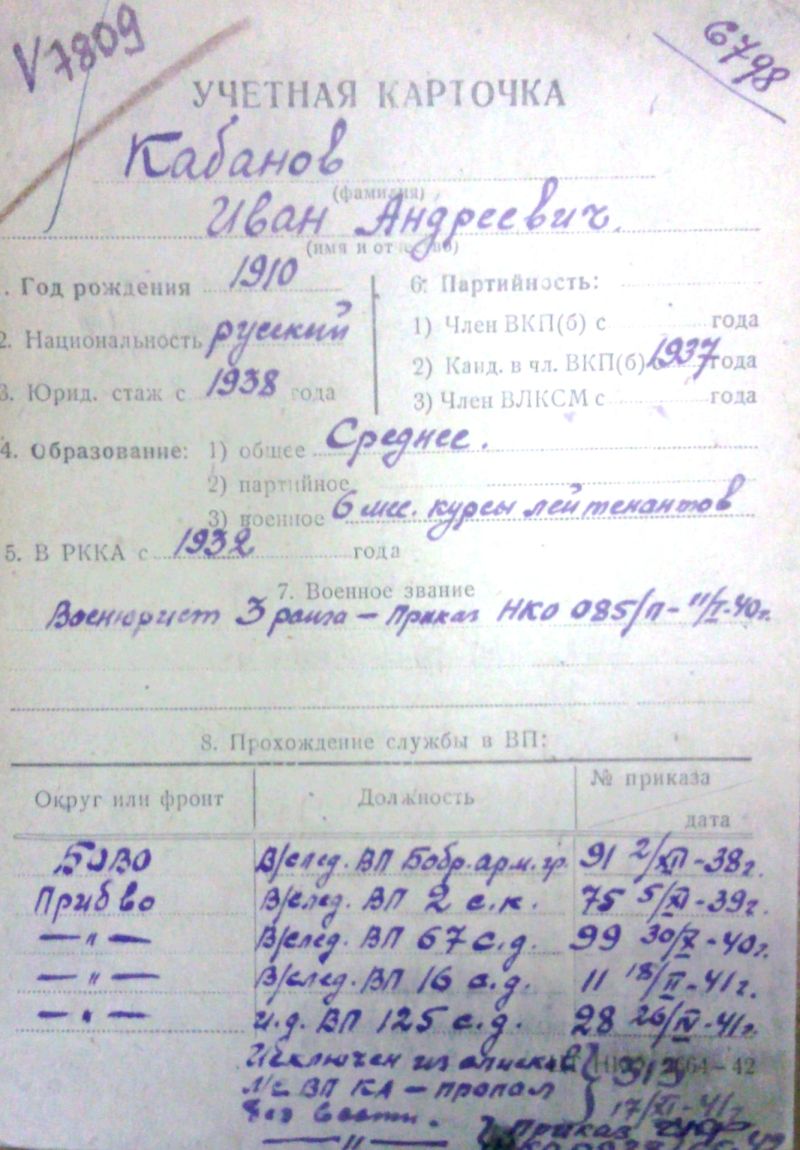 V 7809
6798
УЧЕТНАЯ КАРТОЧКА
Кабанов
(фамилия)
Иван Андреевич.
(имя и отчество)
1. Год рождения 1910
2. Национальность русский
3. Юрид. стаж с 1938 года
6. Партийность:
1) Член ВКП(б) с года
2) Канд. в чл. ВКП(б) с 1937 года
3) Член ВЛКСМ с года
4. Образование: 1) общее Среднее.
2) партийное
3) военное 6 мес. курсы лейтенантов
5. В РККА с 1932 года
7. Военное звание
Военюрист 3 ранга — Приказ НКО 085/п - 11/I-40г.
8. Прохождение службы в ВП:
Округ или фронт Должность № приказа дата
БОВО В/след. ВП Бобр. арм. гр. 91 2/XII-38г.
ПрибВО В/след. ВП 2 с.к. 75 5/XI-39г.
— " — В/след. ВП 67 с.д. 99 30/X-40г.
— " — В/след. ВП 16 с.д. 11 18/II-41г.
— " — и.д. ВП 125 с.д. 28 26/IV-41г.
Исключен из списков 313
Л/с ВП КА — пропал
без вести. 17/XI-41г
— " — Приказ